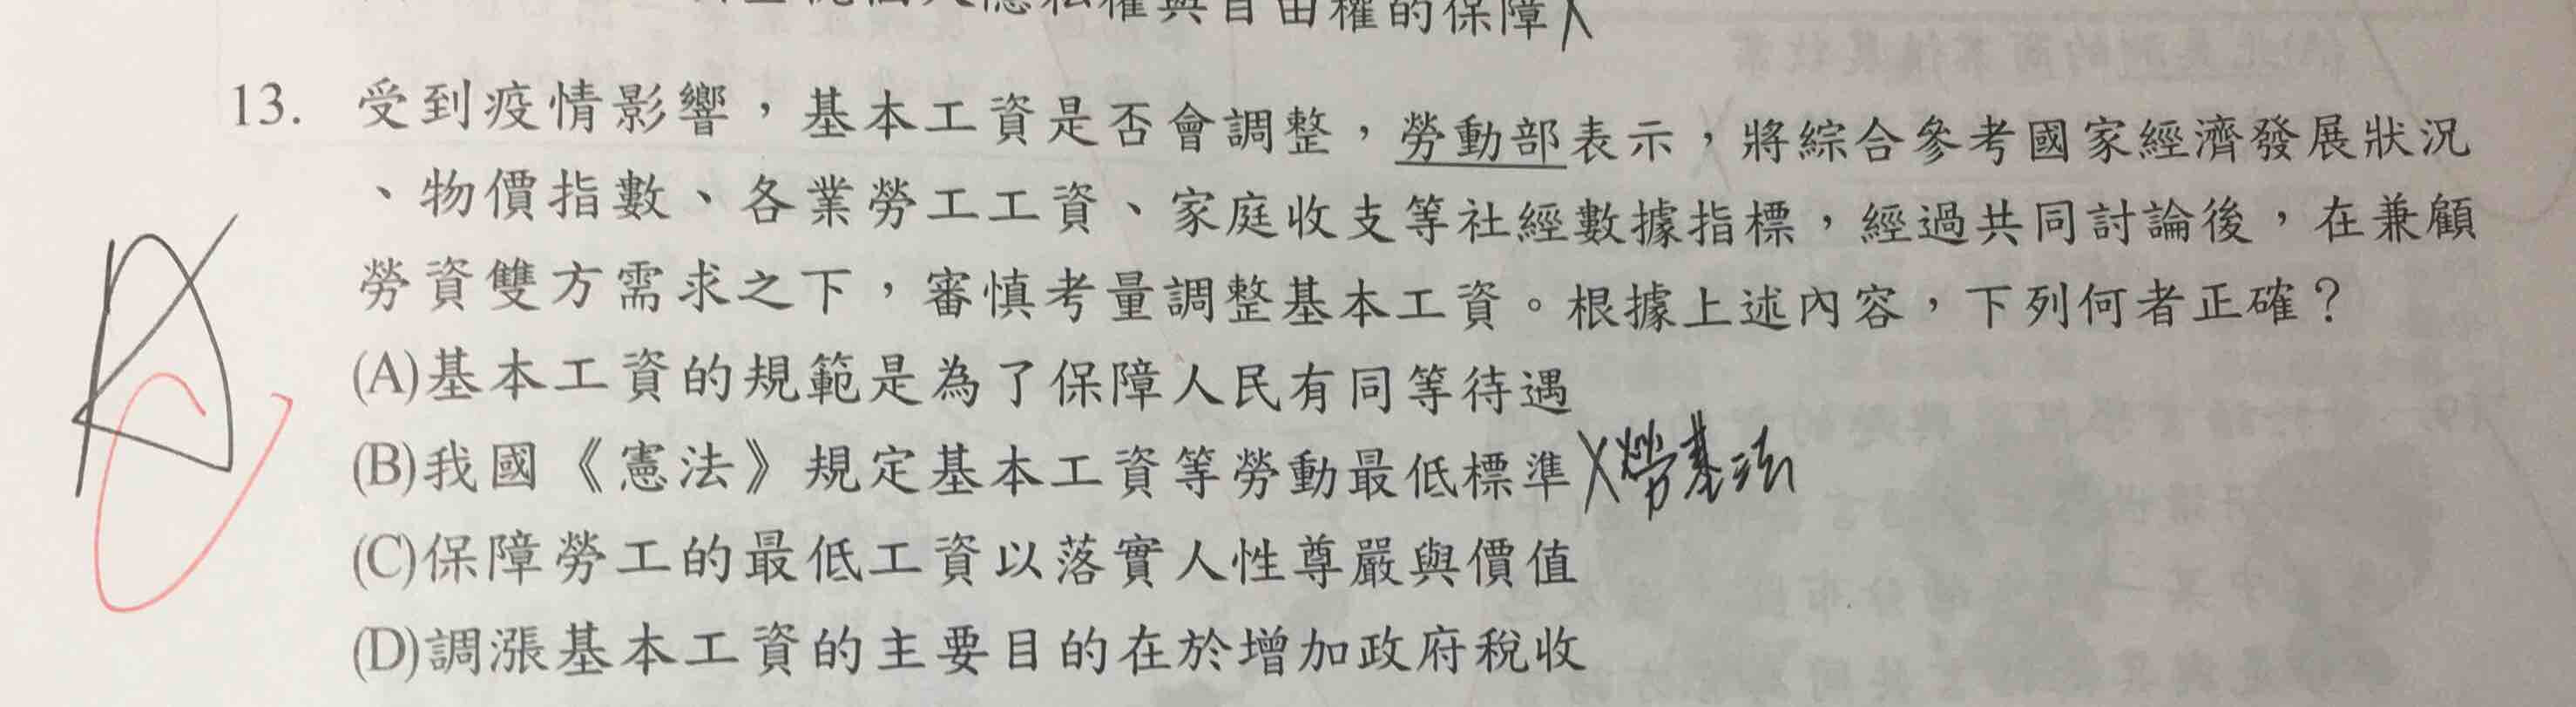 權與自由權的保障X
13. 受到疫情影響，基本工資是否會調整，勞動部表示，將綜合參考國家經濟發展狀況
、物價指數、各業勞工工資、家庭收支等社經數據指標，經過共同討論後，在兼顧
勞資雙方需求之下，審慎考量調整基本工資。根據上述內容，下列何者正確？
(A)基本工資的規範是為了保障人民有同等待遇
(B)我國《憲法》規定基本工資等勞動最低標準X勞基法
(C)保障勞工的最低工資以落實人性尊嚴與價值
(D)調漲基本工資的主要目的在於增加政府稅收